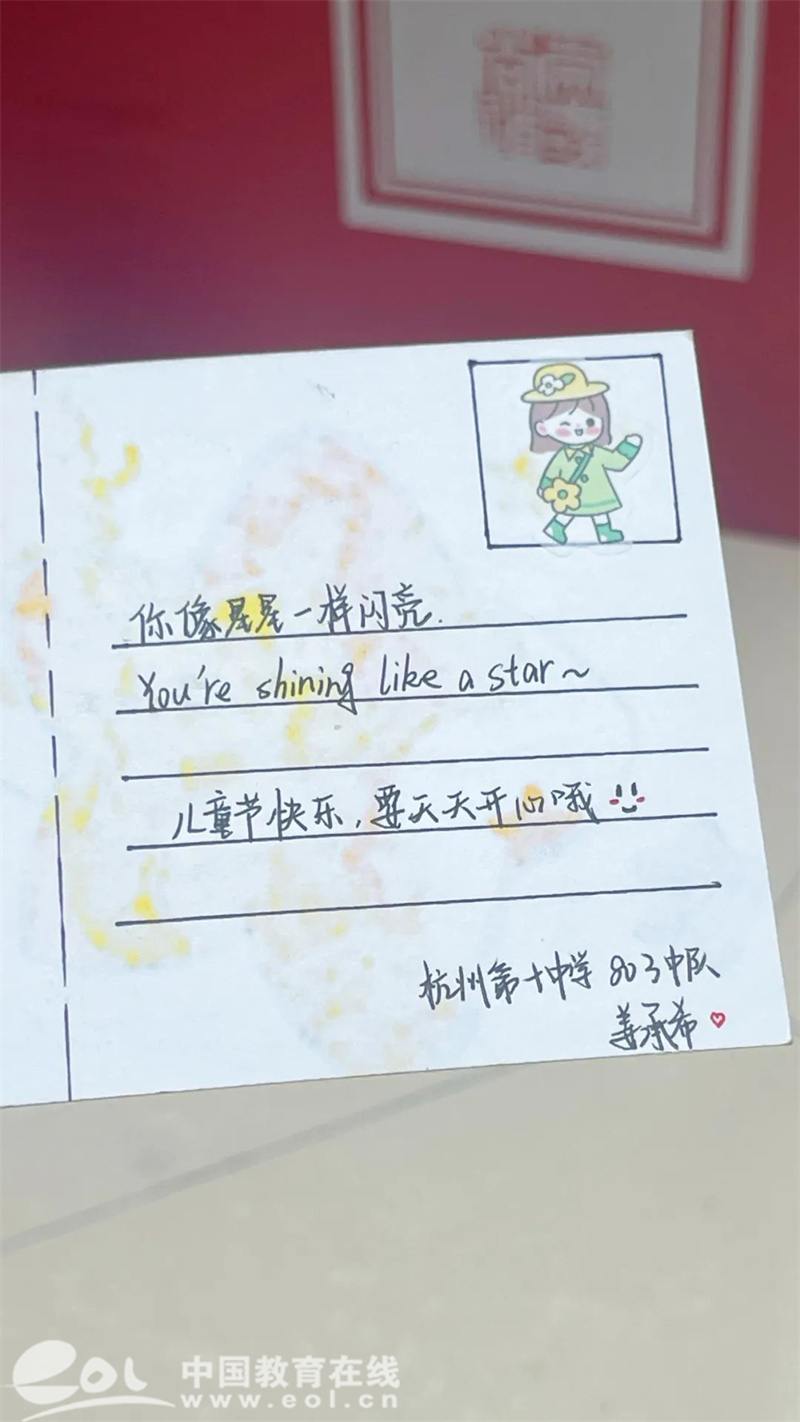 你像星星一样闪亮.
You're shining like a star~
儿童节快乐,要天天开心哦
杭州第十中学 803中队
姜承希
eol 中国教育在线
www.eol.cn